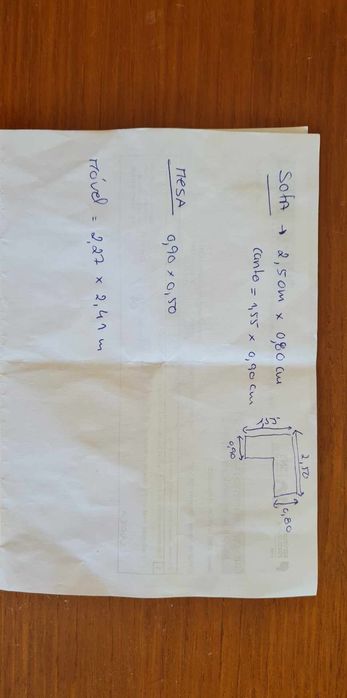 Sofá → 2,50m x 0,80 cm
canto = 1,55 x 0,90 cm
2,50
0,80
0,90
Mesa 0,90 x 0,50
Móvel = 2,27 x 2,41 m